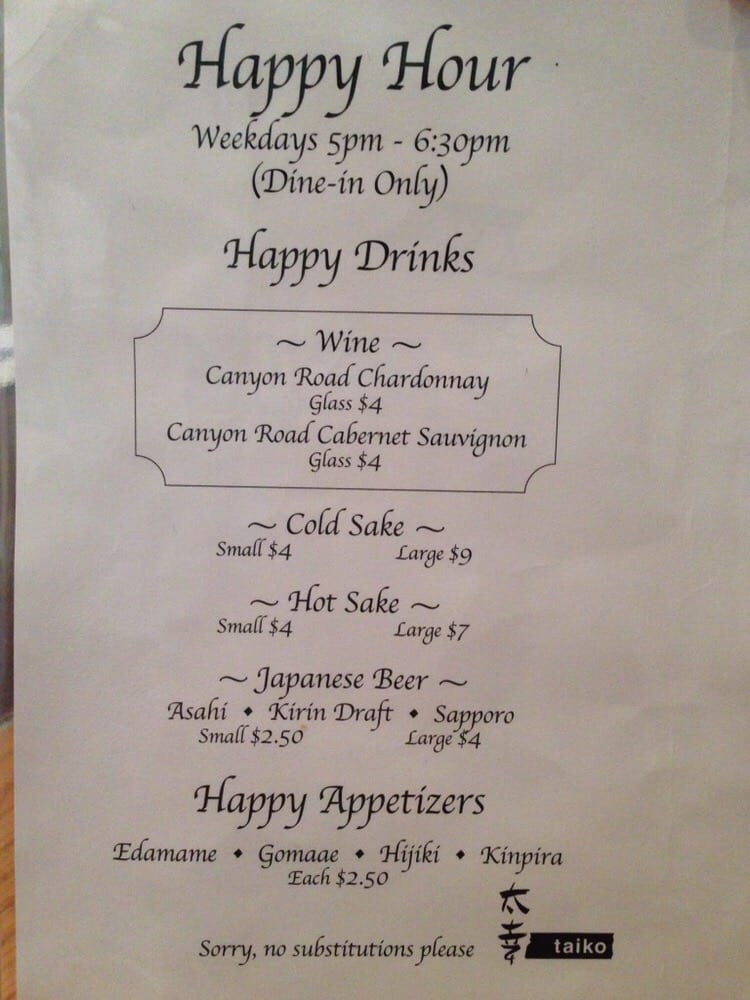 Happy Hour
Weekdays 5pm - 6:30pm
(Dine-in Only)
Happy Drinks
~ Wine ~
Canyon Road Chardonnay
Glass $4
Canyon Road Cabernet Sauvignon
Glass $4
~ Cold Sake ~
Small $4 Large $9
~ Hot Sake ~
Small $4 Large $7
~ Japanese Beer ~
Asahi ◆ Kirin Draft ◆ Sapporo
Small $2.50 Large $4
Happy Appetizers
Edamame ◆ Gomaae ◆ Hijiki ◆ Kinpira
Each $2.50
Sorry, no substitutions please
太幸
taiko